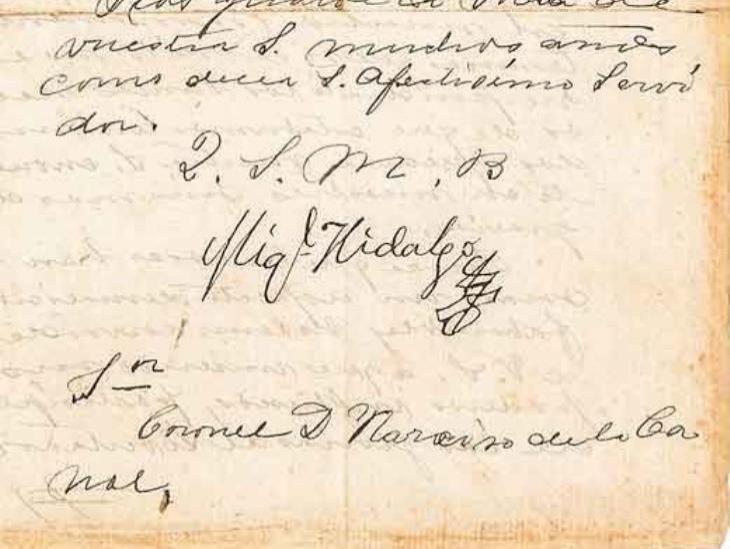 Dios guarde la vida de
vuestra S. muchos años
como decea S. Afectisimo Servi
dor.
Q. S. M. B
Migl. Hidalgo
Sn
Coronel D Narciso de la Ca
nal,